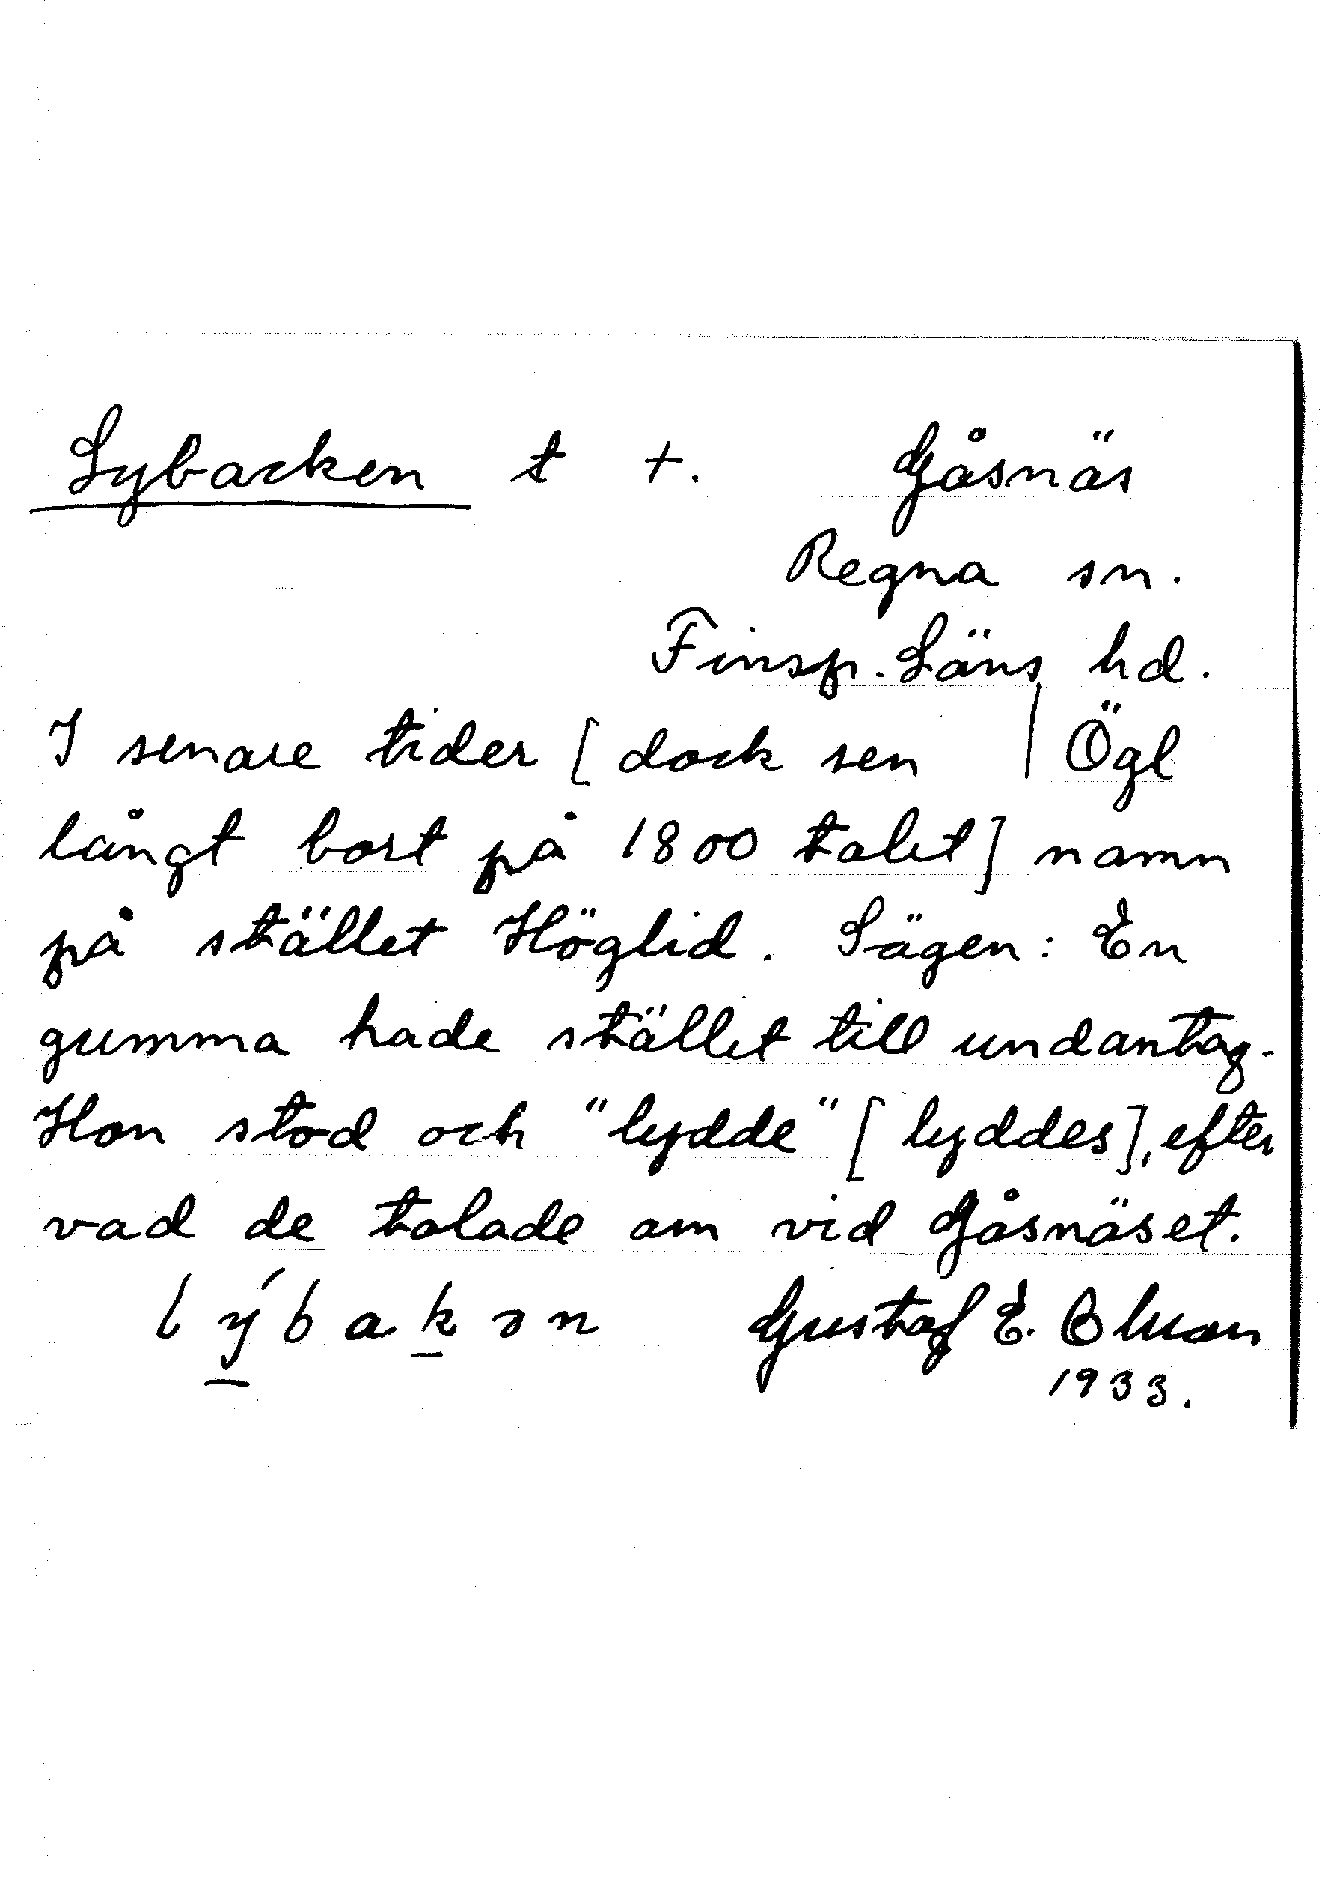 Lybacken t +. Gåsnäs
Regna sn.
Finsp. Läns hd.
I senare tider [dock sen | Ögl
långt bort på 1800 talet] namn
på stället Höglid. Sägen: En
gumma hade stället till undantag.
Hon stod och "lydde" [lyddes], efter
vad de talade om vid Gåsnäset.
lýbakən Gustaf E. Olsson
1933.